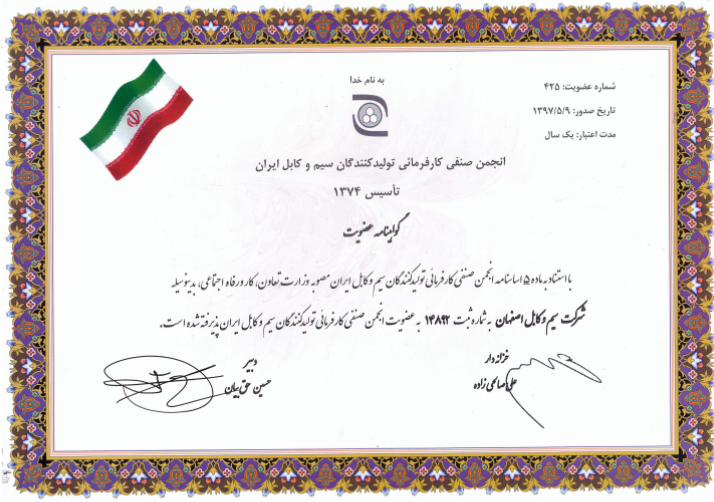 به نام خدا
شماره عضویت: ۴۲۵
تاریخ صدور: ۱۳۹۷/۵/۹
مدت اعتبار: یک سال
انجمن صنفی کارفرمائی تولیدکنندگان سیم و کابل ایران
تأسیس ۱۳۷۴
گواهینامه عضویت
با استناد به ماده ۵ اساسنامه انجمن صنفی کارفرمائی تولیدکنندگان سیم و کابل ایران مصوبه وزارت تعاون، کار و رفاه اجتماعی، بدینوسیله
شرکت سیم و کابل اصفهان به شماره ثبت ۱۴۸۹۲ به عضویت انجمن صنفی کارفرمائی تولیدکنندگان سیم و کابل ایران پذیرفته شده است.
خزانه دار
علی صالحی زاده
دبیر
حسین حق بیان